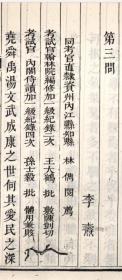 第三問
李燾
同考官直隸資州內江縣知縣林儁閱薦
考試官翰林院編修加一級紀錄二次王大鶴批敷陳剴切
考試官內閣侍讀加一級紀錄四次孫士毅批體用兼賅
堯舜禹湯文武成康之世何其愛民之深